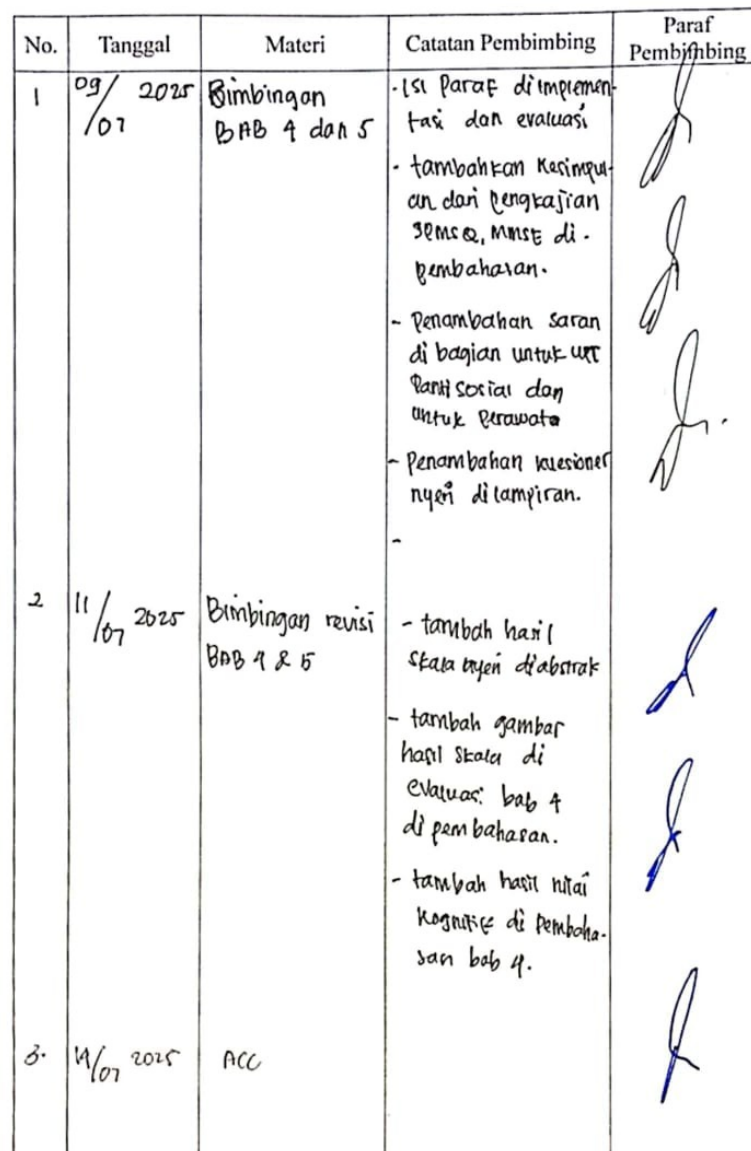 No.
Tanggal
Materi
Catatan Pembimbing
Paraf
Pembimbing
1
09/07 2025
Bimbingan
BAB 4 dan 5
- Isi Paraf di implemen-
tasi dan evaluasi
- tambahkan Kesimpul-
an dari Pengkajian
SPMSQ, MMSE di
pembahasan.
- Penambahan saran
di bagian untuk UPT
Panti Sosial dan
untuk Perawata
- Penambahan kuesioner
nyeri di lampiran.
-
2
11/07 2025
Bimbingan revisi
BAB 4 & 5
- tambah hasil
Skala nyeri diabstrak
- tambah gambar
hasil skala di
evaluasi bab 4
di pembahasan.
- tambah hasil nilai
Kognitif di Pembaha-
san bab 4.
3.
14/07 2025
ACC